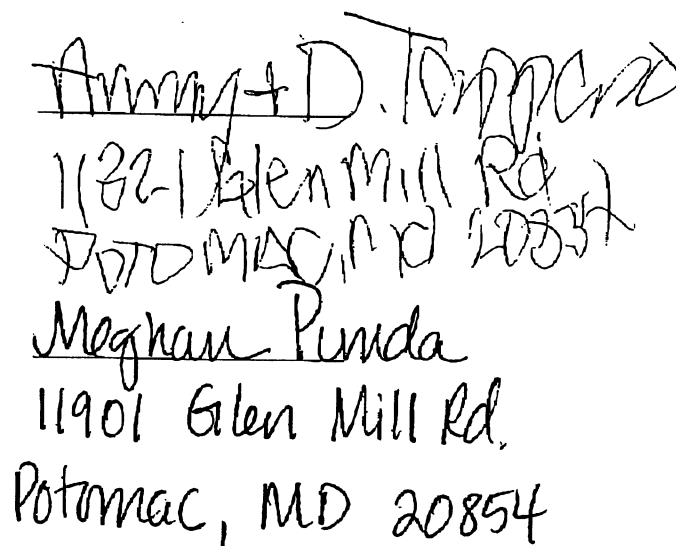 D.
11821 Glen Mill Rd
Potomac, Md 20854
Meghan Punda
11901 Glen Mill Rd.
Potomac, MD 20854